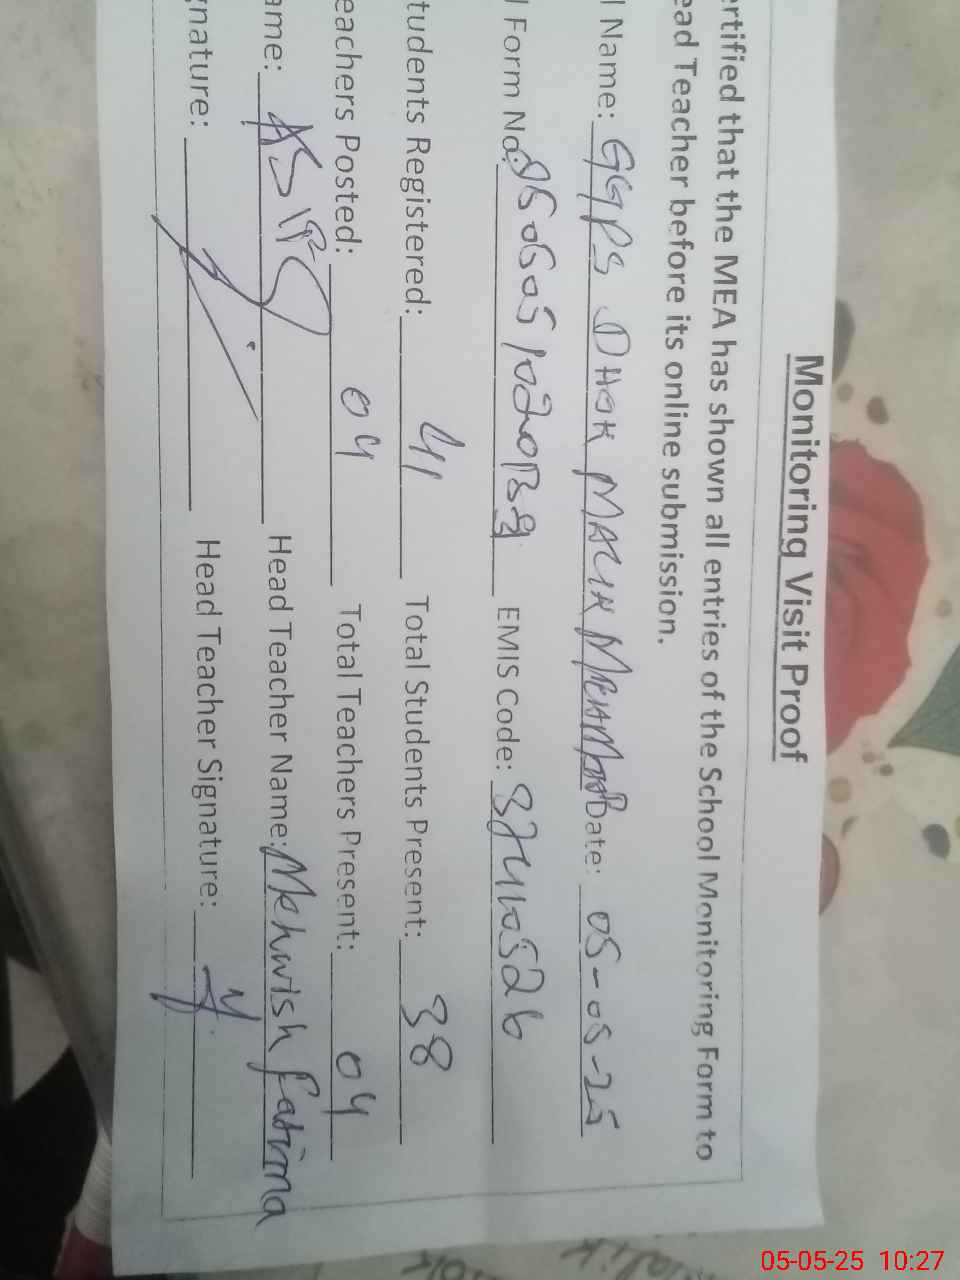 Monitoring Visit Proof
ertified that the MEA has shown all entries of the School Monitoring Form to
ead Teacher before its online submission.
l Name: GGPS DHOK MALIK MEHMOOD Date: 05-05-25
l Form No: EMIS Code: 37410526
tudents Registered: 41 Total Students Present: 38
eachers Posted: 04 Total Teachers Present: 04
ame: ASIF Head Teacher Name: Mehwish Fatima
gnature: Head Teacher Signature:
05-05-25 10:27